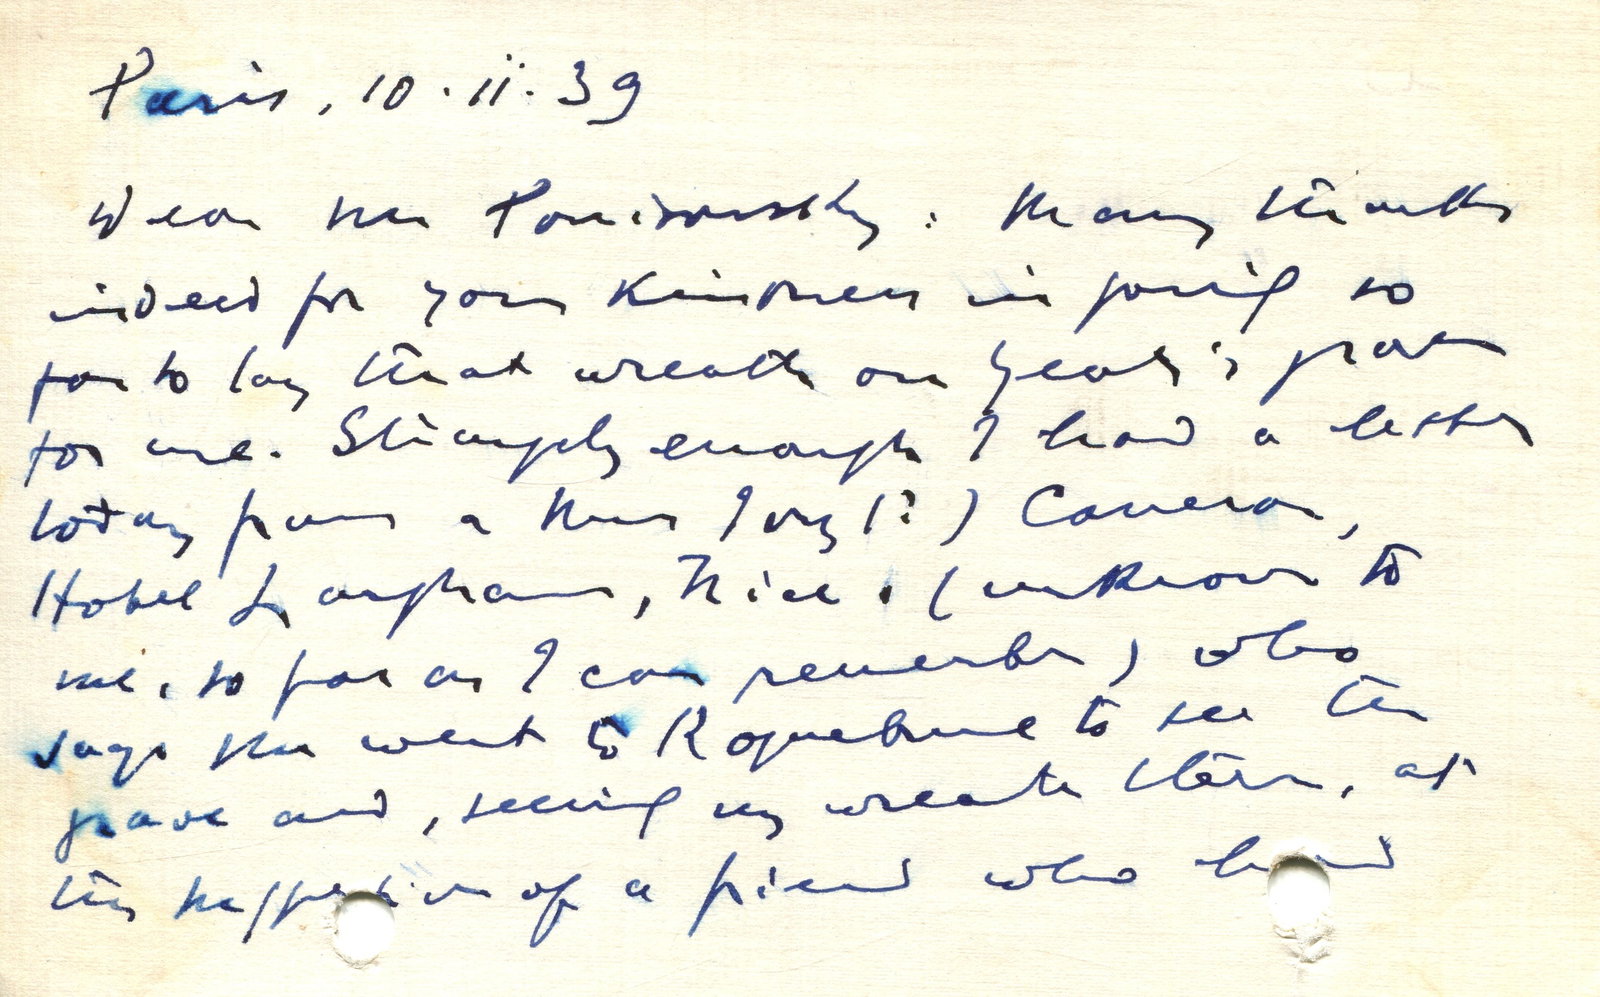 Paris, 10.ii.39
Dear Mr Ponisovsky: Many thanks
indeed for your kindness in going so
far to lay that wreath on Yeats's grave
for me. Strangely enough I had a letter
today from a Miss Ivy (?) Cameron,
Hotel Langham, Nice. (unknown to
me, so far as I can remember) who
says she went to Roquebrune to see the
grave and, seeing my wreath there, at
the suggestion of a friend who had